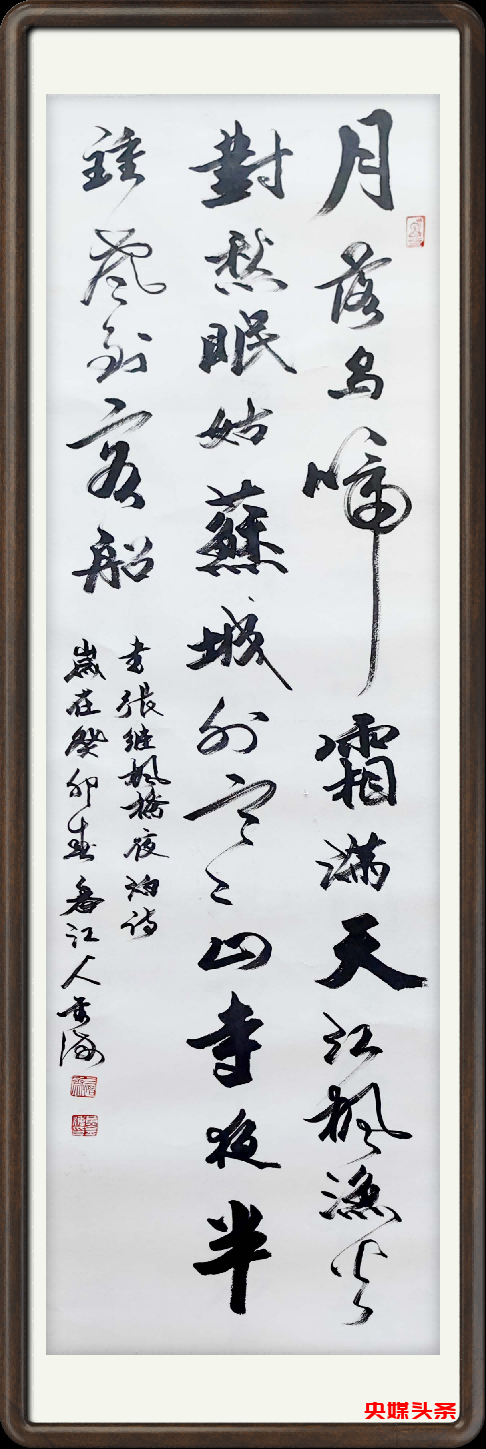 月落烏啼霜满天江楓漁火
對愁眠姑蘇城外寒〻山寺夜半
鍾聲到客船
書張继楓橋夜泊诗
歲在癸卯春香江人
央媒头条